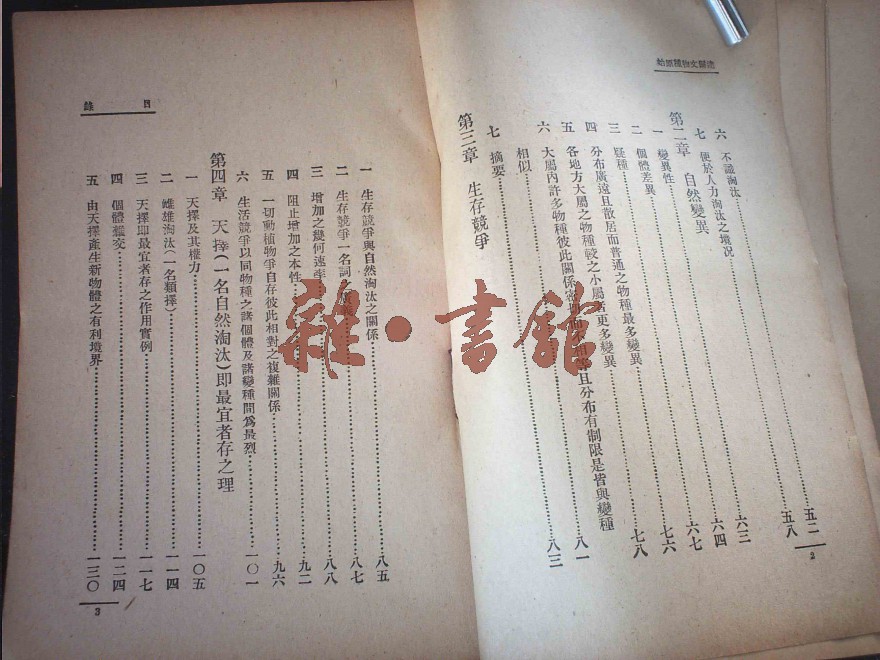 達爾文物種原始
六　不識淘汰……五二
七　便於人力淘汰之境況……五八
第二章　自然變異
一　變異性……六三
二　個體差異……六四
三　疑種……六七
四　分布廣遠且散居而普通之物種最多變異……七六
五　各地方大屬之物種較之小屬者更多變異……七八
六　大屬內許多物種彼此關係密切而不相等且分布有制限是皆與變種
相似……八一
七　摘要……八三
第三章　生存競爭
2
目錄
一　生存競爭與自然淘汰之關係……八五
二　生存競爭一名詞……八七
三　增加之幾何速率……八八
四　阻止增加之本性……九二
五　一切動植物爭自存彼此相對之複雜關係……九六
六　生活競爭以同物種之諸個體及諸變種間爲最烈……一〇一
第四章　天擇(一名自然淘汰)即最宜者存之理
一　天擇及其權力……一〇五
二　雌雄淘汰(一名類擇)……一一四
三　天擇即最宜者存之作用實例……一一七
四　個體雜交……一二四
五　由天擇產生新物體之有利境界……一三〇
3
雜·書館